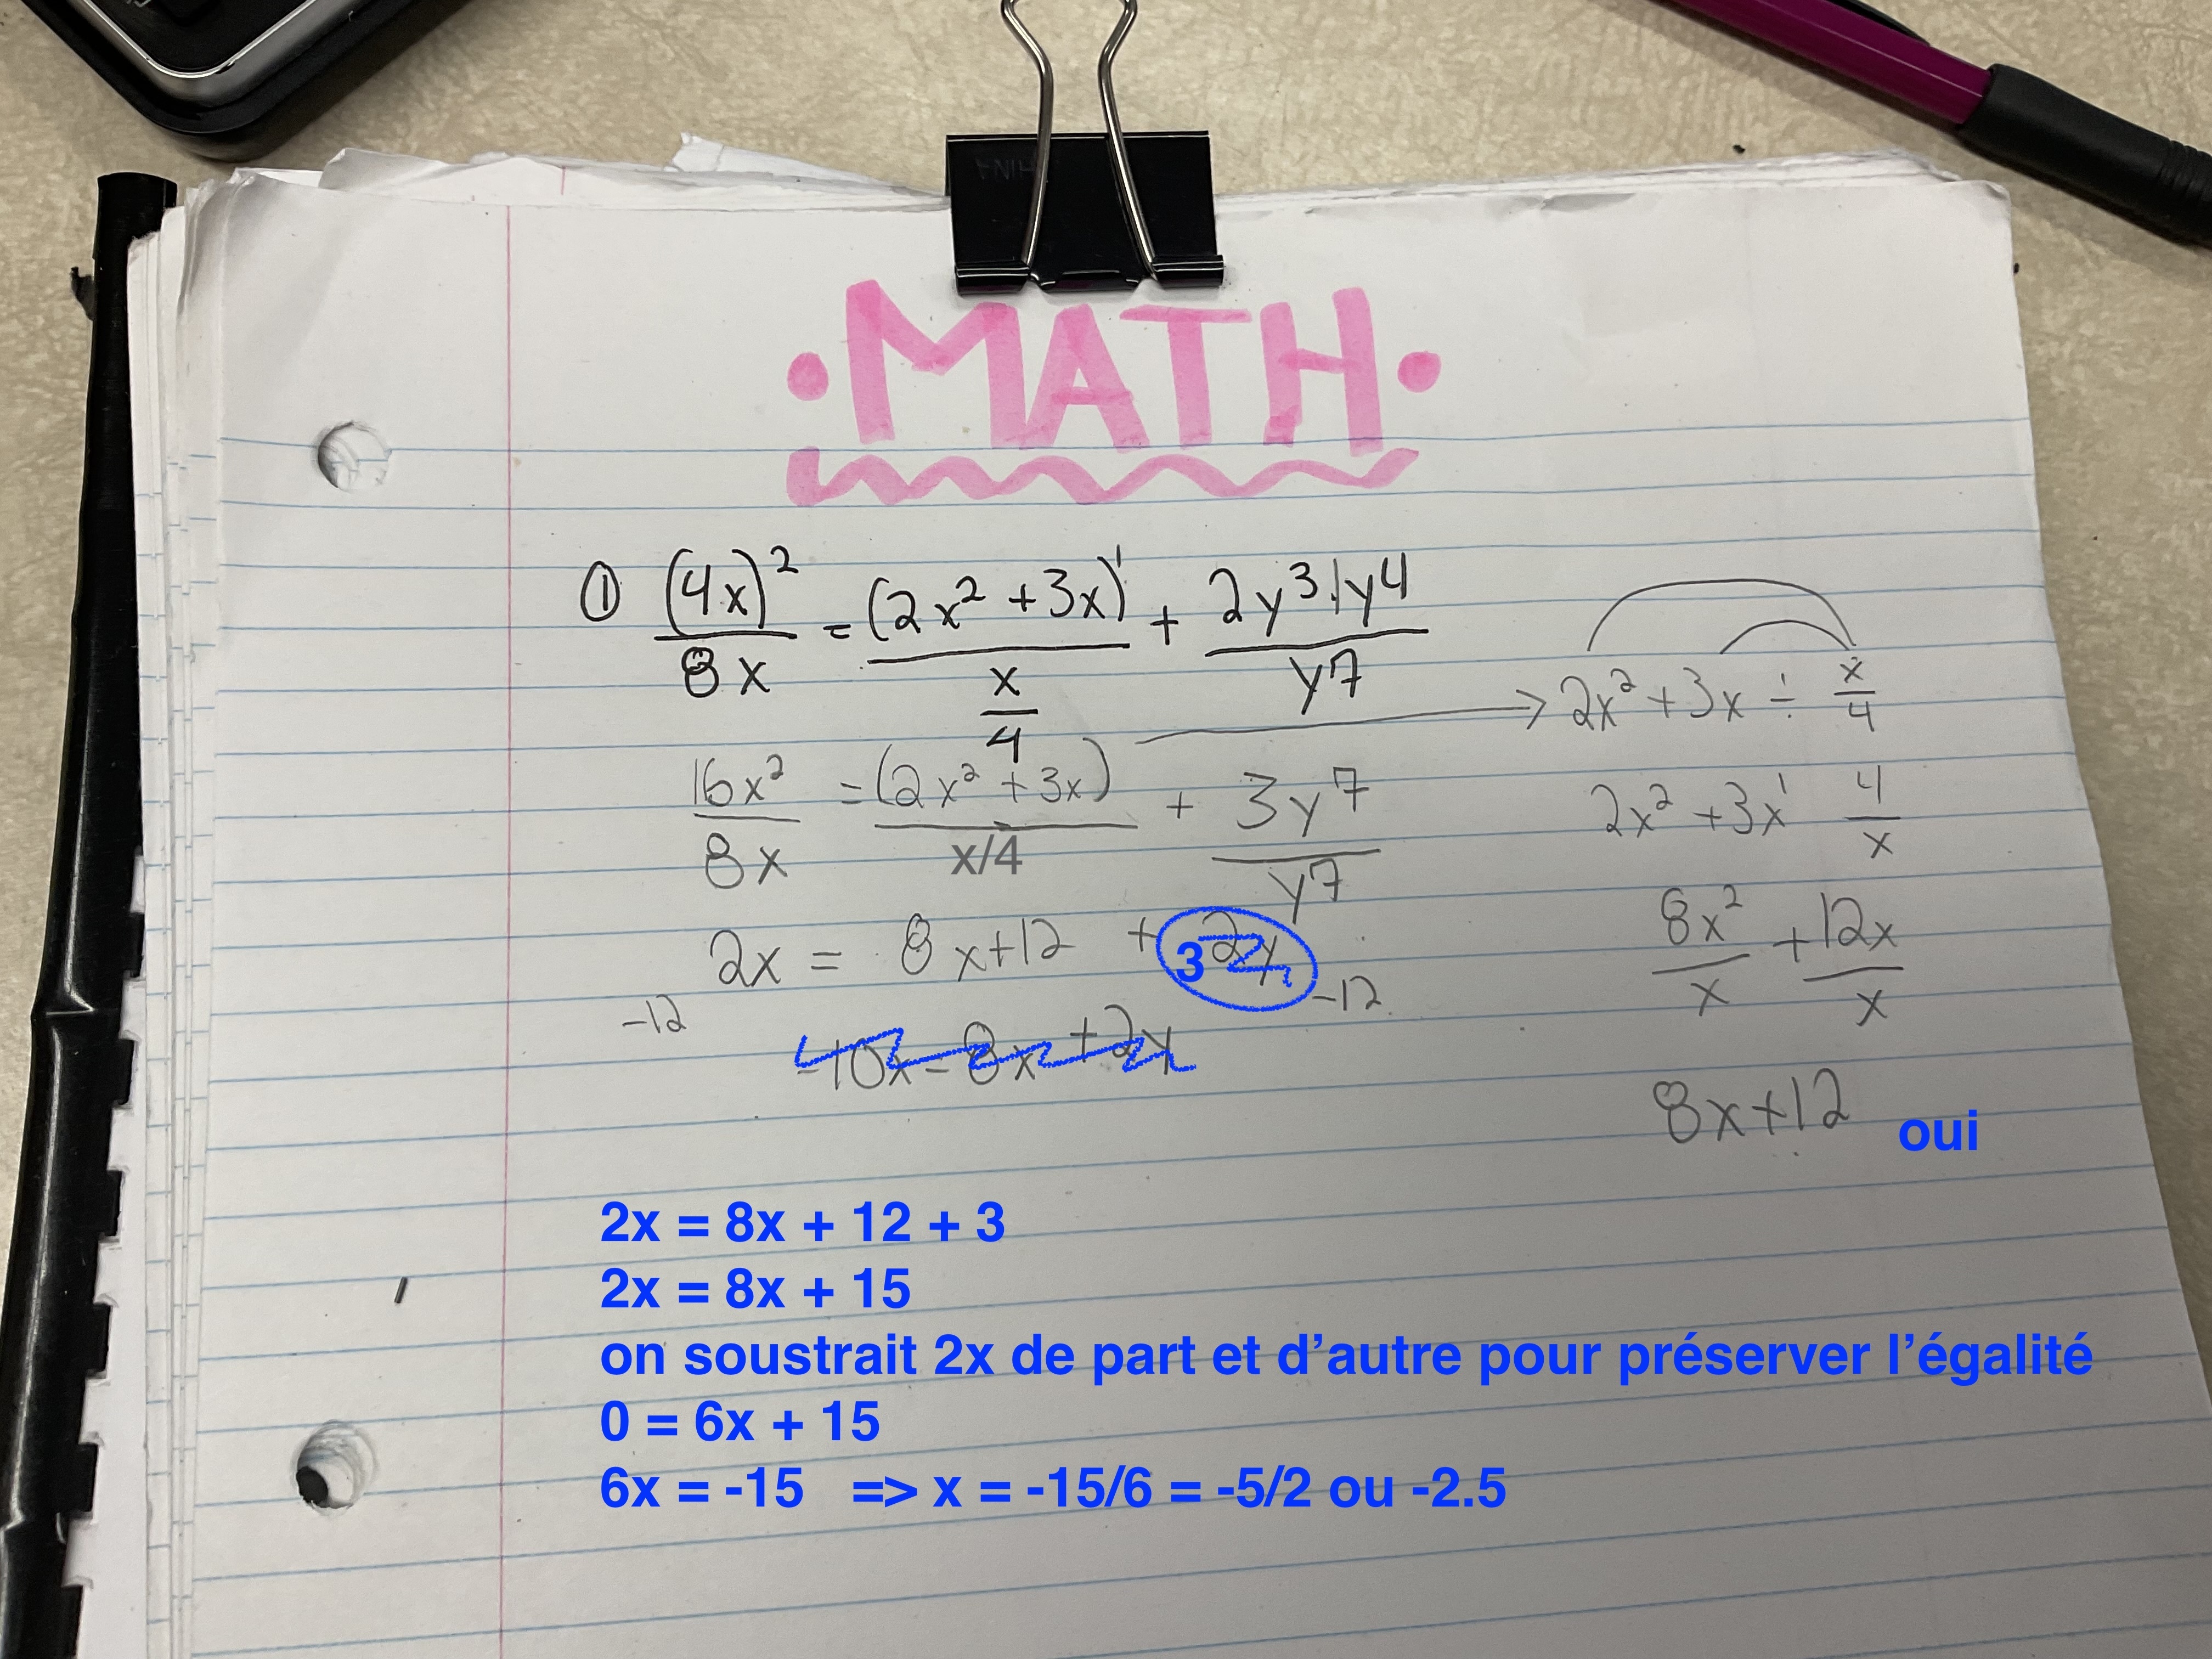 MATH
① (4x)² / 8x = (2x² + 3x)¹ / (x/4) + 2y³·1y⁴ / y7
16x² / 8x = (2x² + 3x) / x/4 + 3y⁷ / y7
2x = 8x+12 + 2y 3
-12 -12
-10x = 8x + 2y
2x² + 3x ÷ x/4
2x² + 3x¹ 4/x
8x²/x + 12x/x
8x+12 oui
2x = 8x + 12 + 3
2x = 8x + 15
on soustrait 2x de part et d’autre pour préserver l’égalité
0 = 6x + 15
6x = -15 => x = -15/6 = -5/2 ou -2.5